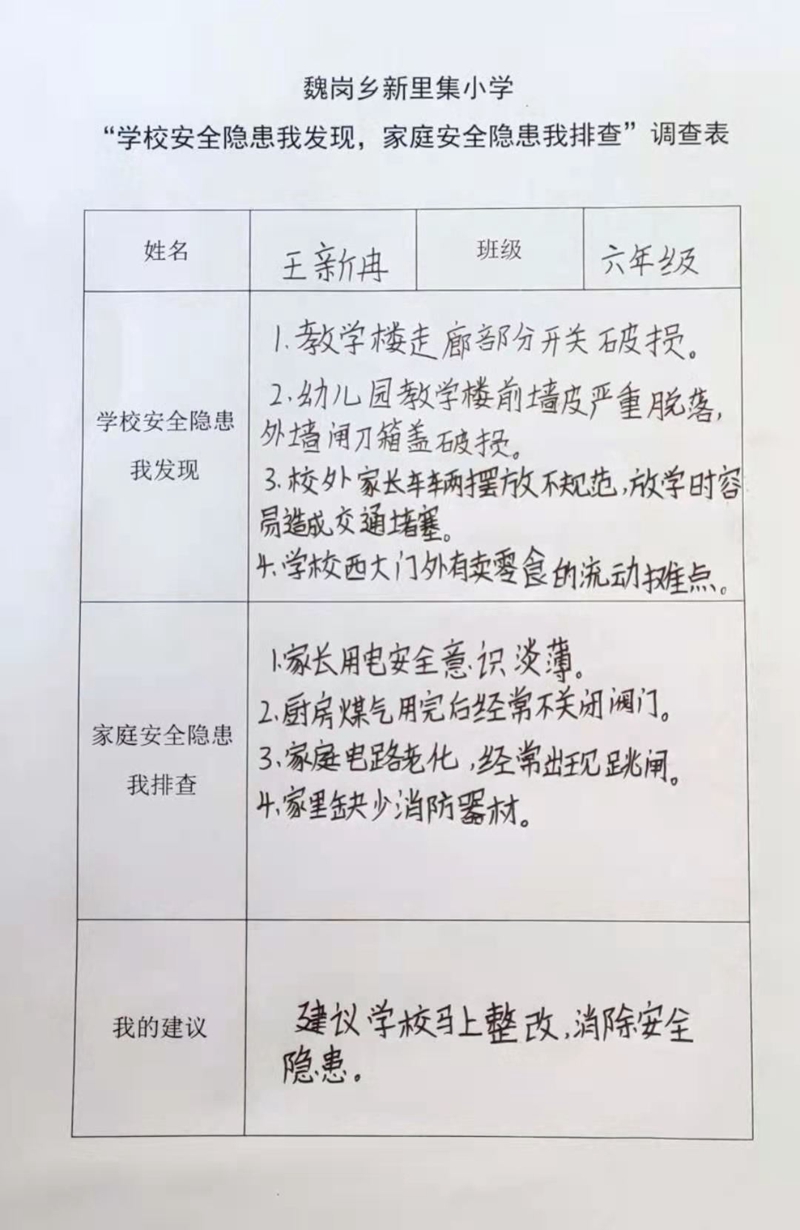 魏岗乡新里集小学
“学校安全隐患我发现，家庭安全隐患我排查”调查表
姓名
王新冉
班级
六年级
学校安全隐患
我发现
1.教学楼走廊部分开关破损。
2.幼儿园教学楼前墙皮严重脱落，
外墙闸刀箱盖破损。
3.校外家长车辆摆放不规范，放学时容
易造成交通堵塞。
4.学校西大门外有卖零食的流动摊点。
家庭安全隐患
我排查
1.家长用电安全意识淡薄。
2.厨房煤气用完后经常不关闭阀门。
3.家庭电路老化，经常出现跳闸。
4.家里缺少消防器材。
我的建议
建议学校马上整改，消除安全
隐患。